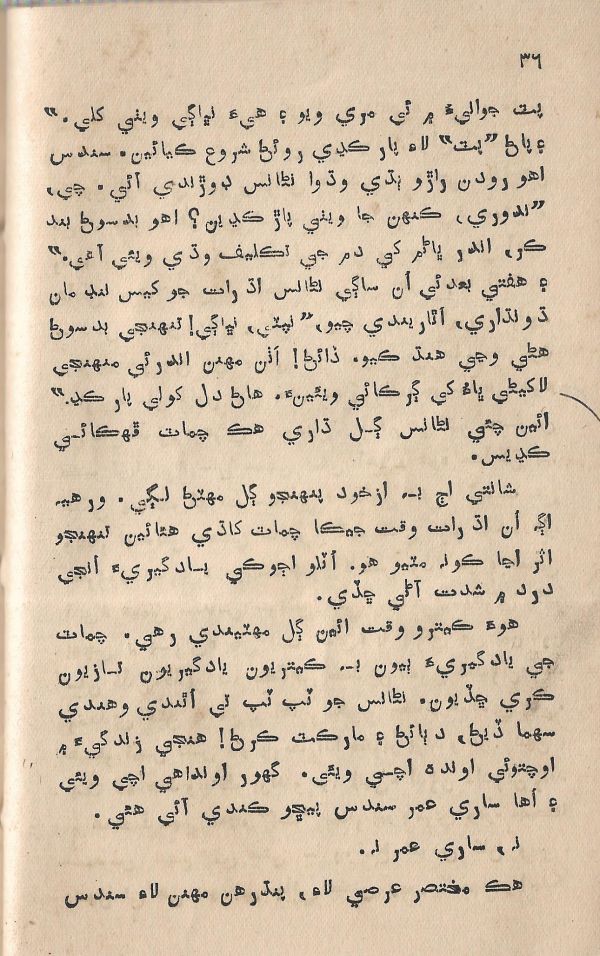 ٣٦
پٽ جوالپڻ ۾ ئي مري ويو ۽ هيءَ نڀاڳي ويٺي کلي.“
۽ پاڻ ”پٽ“ لاءِ پار ڪڍي روئڻ شروع ڪيائين. سندس
اهو رودن راڙو ٻڌي وڏوا نڻانس ڊوڙندي آئي. چي،
”ندوري، ڪنهن جا ويٺي پاڙ ڪڍين؟ اهو بدسوڻ بند
ڪر، اندر ڀاڻم کي دم جي تڪليف وڌي ويئي آهي.“
۽ هفتي بعد ئي اُن ساڳي نڻانس اڌ رات جو کيس ننڊ مان
ڌونڌاري، اُٿاريندي چيو، ”نپٽي، نڀاڳي! تنهنجي بدسوڻ
هڻي وڃي هنڌ ڪيو. ڏائڻ! اَٺن مهنن اندر ئي منهنجي
لاکيڻي ڀاءُ کي ڳرڪائي ويئينءَ. هاڻ دل کولي پار ڪڍ.“
ائين چئي نڻانس ڳل ڌاري هڪ چمات ڦهڪائي
ڪڍيس.
شانتي اڄ بہ ازخود پنهنجو ڳل مهٽڻ لڳي. ورهيہ
اڳ اُن اڌ رات وقت جيڪا چمات کاڌي هئائين تنهنجو
اثر اڃا ڪونہ مٽيو هو. اُٽلو اڄوڪي يادگيريءَ اُنجي
درد ۾ شدت آڻي ڇڏي.
هوءَ ڪيترو وقت ائين ڳل مهٽيندي رهي. چمات
جي يادگيريءَ ٻيون بہ ڪيتريون يادگيريون تازيون
ڪري ڇڏيون. نڻانس جو ٽپ ٽپ تي اُٿندي وهندي
سهما ڏيڻ، دٻائڻ ۽ مارڪٽ ڪرڻ! هنجي زندگيءَ ۾
اوچتوئي اونده اچي ويئي. گهور اونداهي اچي ويئي
۽ اُها ساري عمر سندس پيڇو ڪندي آئي هئي.
نہ، ساري عمر نہ.
هڪ مختصر عرصي لاءِ، پندرهن مهنن لاءِ سندس